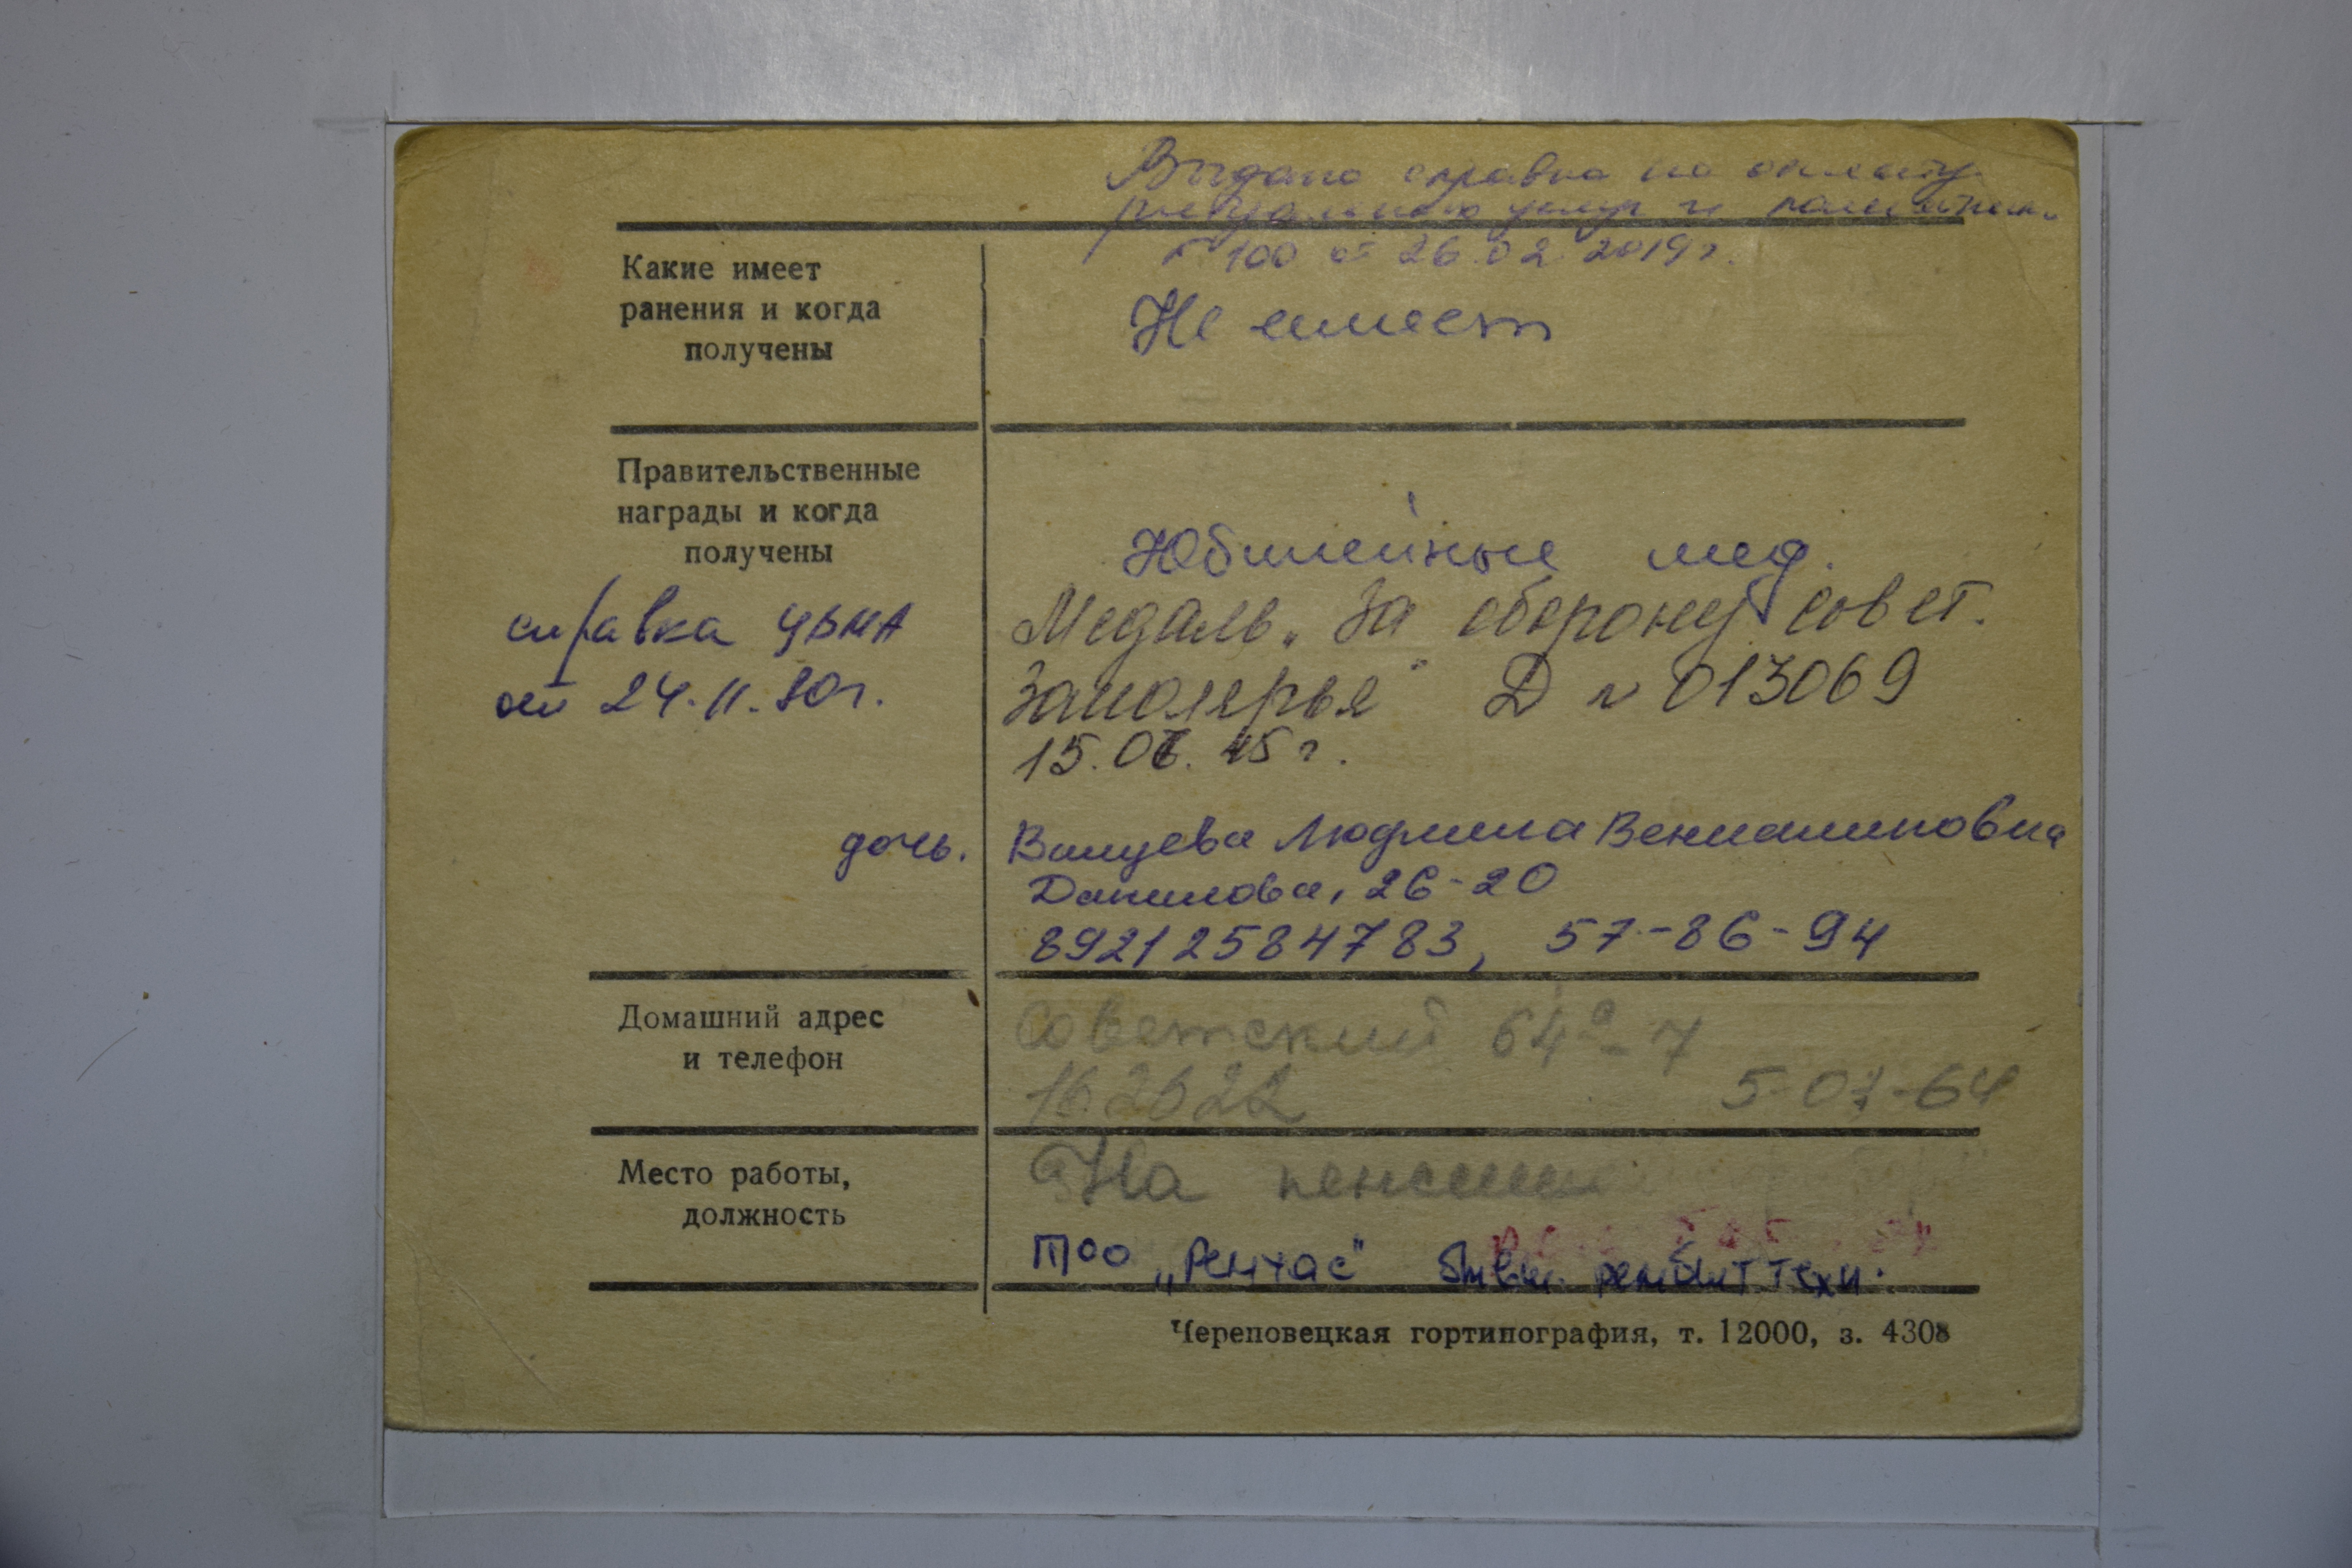 Выдана справка на оплату
ритуальных услуг и памятник
№ 100 от 26.02.2019 г.
Какие имеет
ранения и когда
получены
Не имеет
Правительственные
награды и когда
получены
Юбилейные мед.
справка ЦВМА
от 24.11.80г.
Медаль „За оборону Совет.
Заполярья" Д № 013069
15.06.45 г.
дочь. Людмила Вениаминовна
Данилова, 26-20
89212584783, 57-86-94
Домашний адрес
и телефон
Советский 64а-7
162622 5-07-64
Место работы,
должность
На пенсии
ТОО „Рентас" бывш. рембыттехн.
Череповецкая гортипография, т. 12000, з. 4308